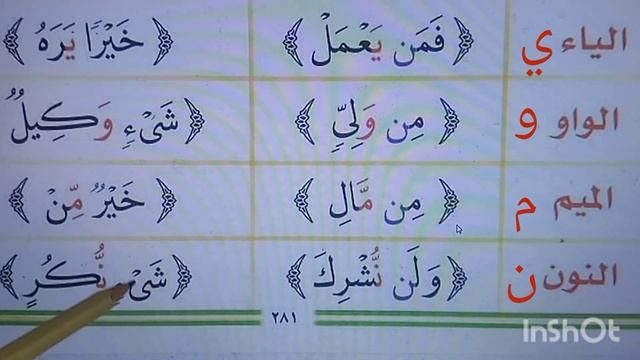 الياء ي ﴿ فَمَن يَعْمَلْ ﴾ ﴿ خَيْرًا يَرَهُ ﴾
الواو و ﴿ مِن وَلِيٍّ ﴾ ﴿ شَىْءٍ وَكِيلٌ ﴾
الميم م ﴿ مِن مَّالِ ﴾ ﴿ خَيْرٌ مِّنْ ﴾
النون ن ﴿ وَلَن نُّشْرِكَ ﴾ ﴿ شَىْءٍ نُّكُرٍ ﴾
٢٨١
InShOt